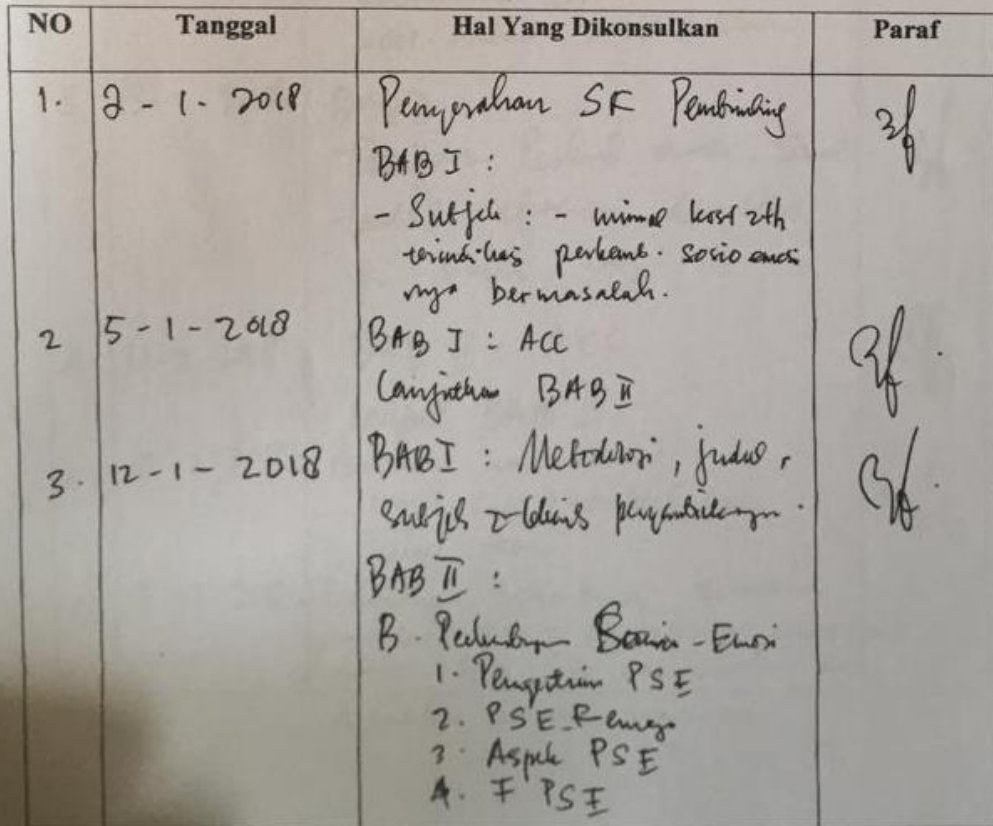 NO Tanggal Hal Yang Dikonsulkan Paraf
1. 2 - 1 - 2018 Penyerahan SK Pembimbing
BAB I :
- Subjek : - minimal kost 2th
terindikasi perkemb. sosio emosi
nya bermasalah.
2 5 - 1 - 2018 BAB I : ACC
Lanjutkan BAB II
3. 12 - 1 - 2018 BAB I : Metodologi, judul,
subjek pengambilannya.
BAB II :
B. Perkembangan Sosio - Emosi
1. Pengertian PSE
2. PSE Remaja
3. Aspek PSE
4. F PSE